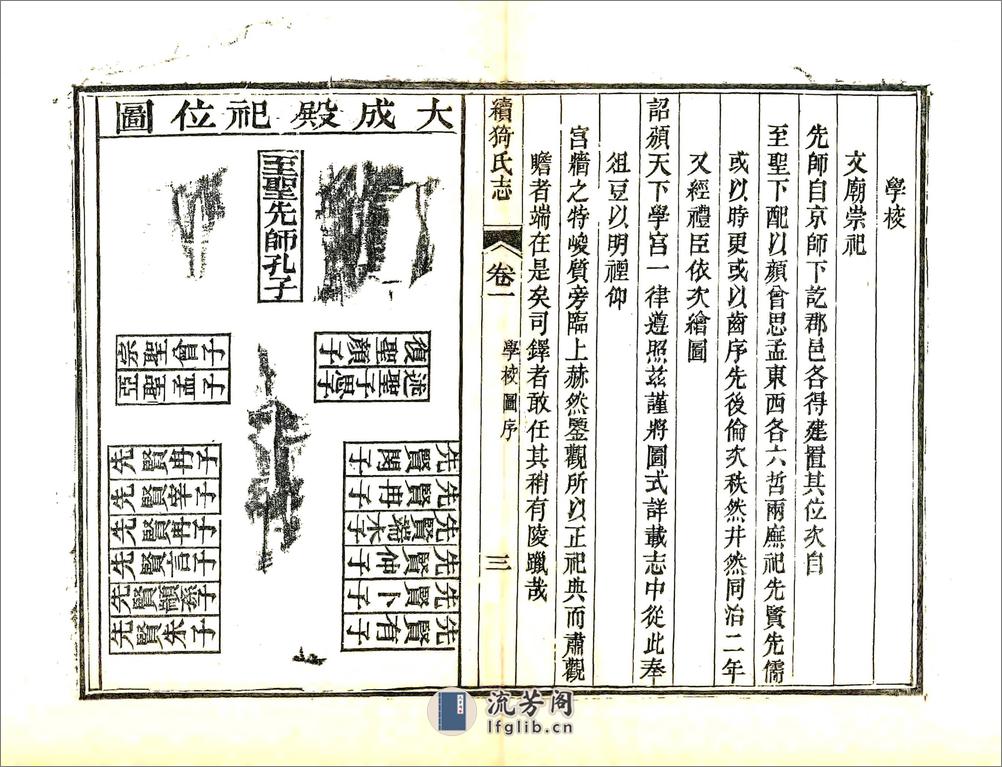 學校
文廟崇祀
先師自京師下訖郡邑各得建置其位次自
至聖下配以顏曾思孟東西各六哲兩廡祀先賢先儒
或以時更或以齒序先後倫次秩然井然同治二年
又經禮臣依次繪圖
詔頒天下學宮一律遵照茲謹將圖式詳載志中從此奉
俎豆以明禋仰
宮牆之特峻質旁臨上赫然鑒觀所以正祀典而肅觀
瞻者端在是矣司鐸者敢任其稍有陵躐哉
續猗氏志
卷一
學校圖序
三
大成殿祀位圖
至聖先師孔子
復聖顏子
述聖子思子
宗聖曾子
亞聖孟子
先賢閔子
先賢冉子
先賢端木子
先賢仲子
先賢卜子
先賢有子
先賢冉子
先賢宰子
先賢冉子
先賢言子
先賢顓孫子
先賢朱子
流芳阁
lfglib.cn